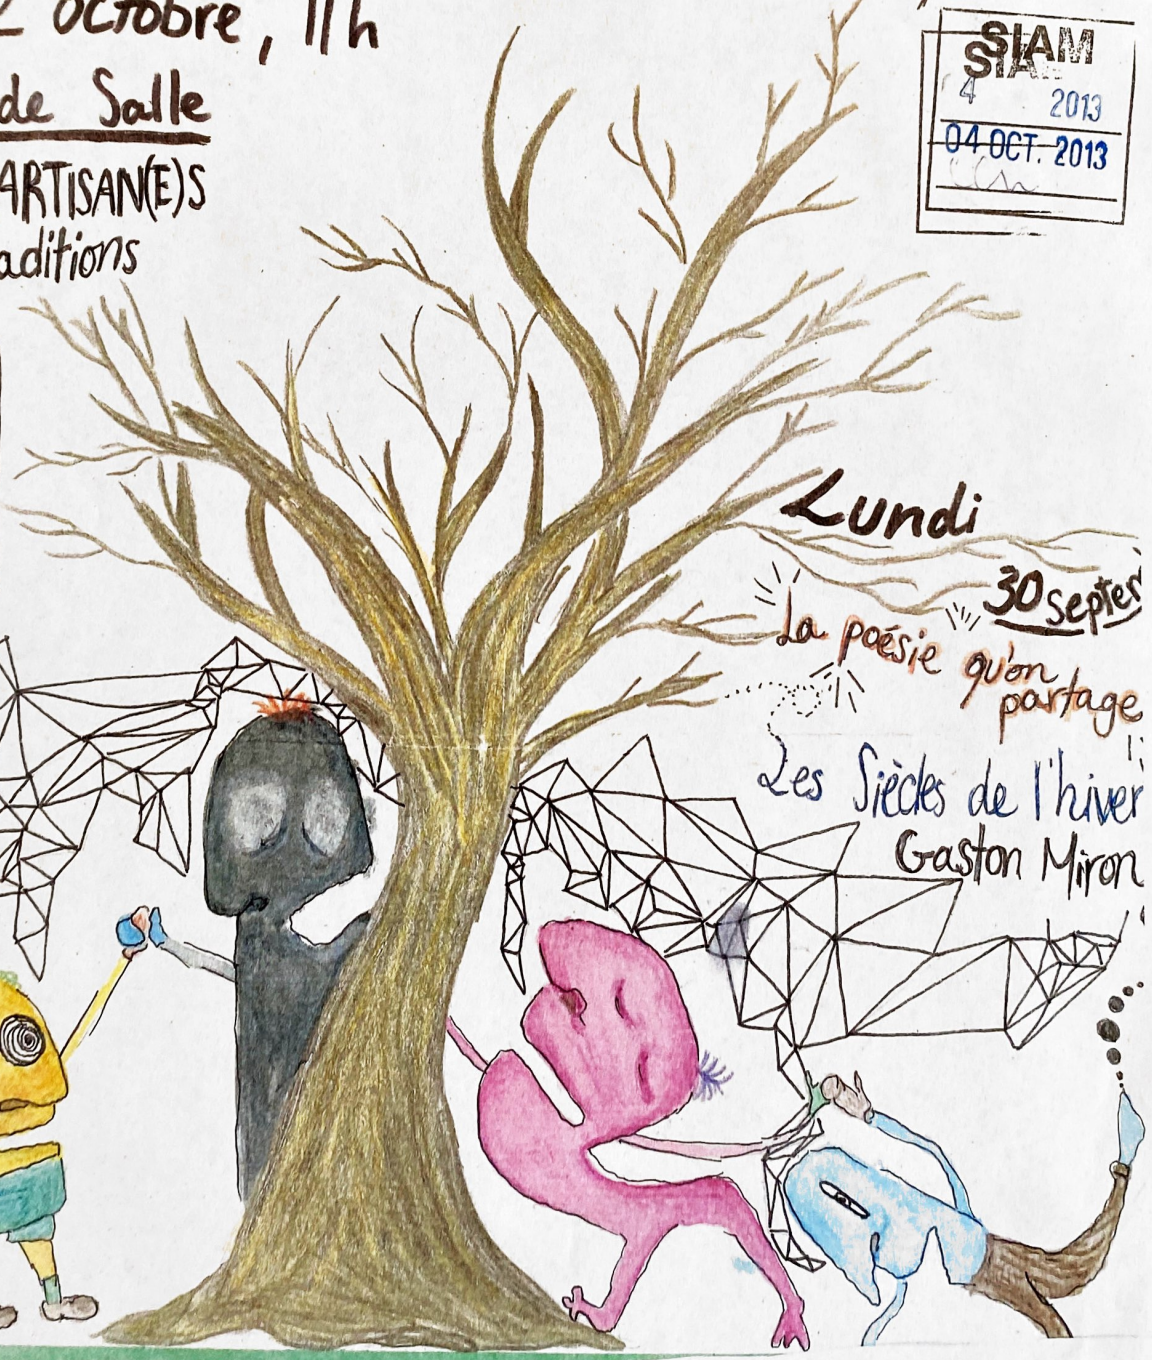 octobre, 11h
de Salle
ARTISAN(E)S
aditions
SIAM
SIA
4 2013
04 OCT. 2013
Lundi
30 septe
La poésie qu'on
partage
Les Siècles de l'hiver
Gaston Miron